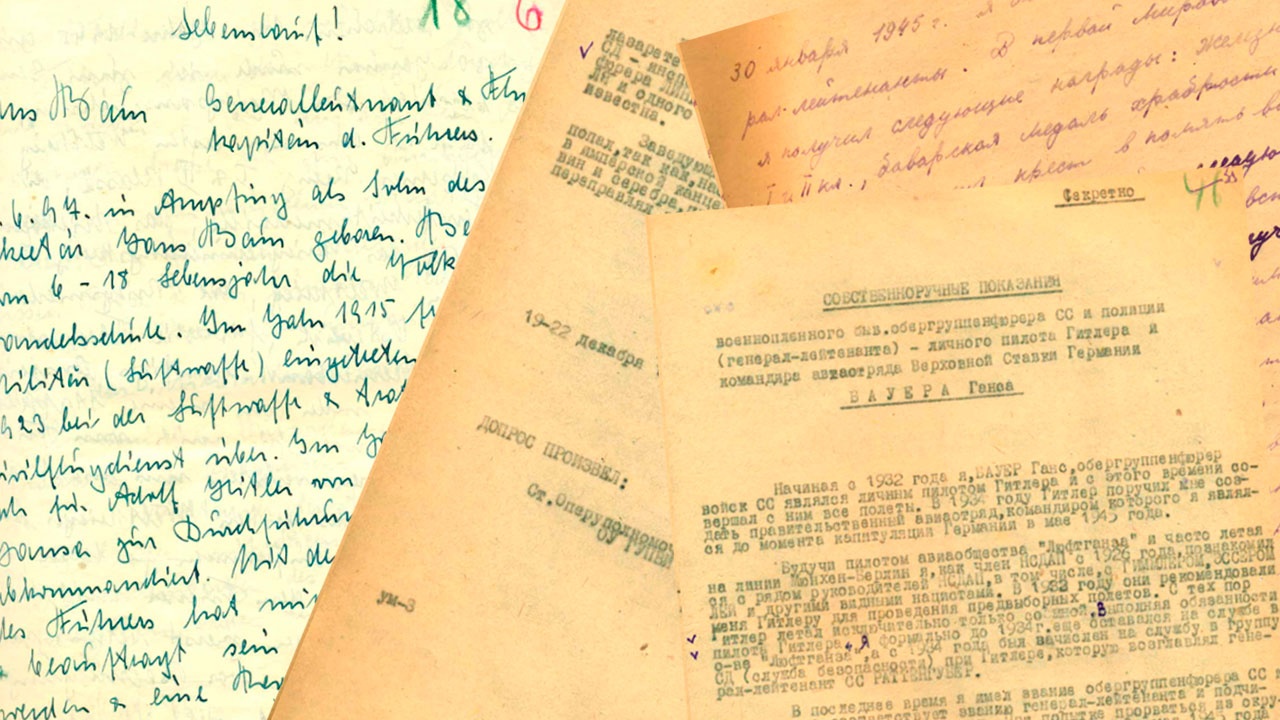 Lebenslauf!
18
6
Baur Generalleutnant &
kapitän d. Führers.
in Ampfing als Sohn des
Hans Baur geboren.
6 - 18 Lebensjahr die Volk
andelsschule. Im Jahr 1915
(Luftwaffe) eingetreten
923 bei der Luftwaffe &
ivilflugdienst über. Im
für Adolf Hitler von
zur Durchführun
abkommandiert. Mit de
des Führers hat mir
beauftragt sein
& eine
лазарете
СД - инсп
фюрера
ле и одного
известна.
Заведую
попал, так как, нас
в имперской канце
вин и серебра,
переправлял
19-22 декабря
ДОПРОС ПРОИЗВЕЛ:
Ст.Оперуполномоч
ОУ ГУПВИ
ум-3
30 января 1945 г. я
рал-лейтенанты. В первой мирово
я получил следующие награды: Железн
I и II кл., баварская медаль храбрости
крест в память в
Секретно
СОБСТВЕННОРУЧНЫЕ ПОКАЗАНИЯ
военнопленного быв.обергруппенфюрера СС и полиции
(генерал-лейтенанта) - личного пилота Гитлера и
командира авиаотряда Верховной Ставки Германии
БАУЕРА Ганса
Начиная с 1932 года я, БАУЕР Ганс, обергруппенфюрер
войск СС являлся личным пилотом Гитлера и с этого времени со-
вершал с ним все полеты. В 1934 году Гитлер поручил мне соз-
дать правительственный авиаотряд, командиром которого я являл-
ся до момента капитуляции Германии в мае 1945 года.
Будучи пилотом авиаобщества "Люфтганза" и часто летая
на линии Мюнхен-Берлин я, как член НСДАП с 1926 года, познакомил
ся с рядом руководителей НСДАП, в том числе, с ГИММЛЕРОМ, ЭССЕРОМ
ЛЕЙ и другими видными нацистами. В 1932 году они рекомендовали
меня Гитлеру для проведения предвыборных полетов. С тех пор
Гитлер летал исключительно только со мной. Выполняя обязанности
пилота Гитлера, я формально до 1934 г. еще оставался на службе в
о-ве "Люфтганза", а с 1934 года был зачислен на службу в группу
СД (служба безопасности) при Гитлере, которую возглавлял гене-
рал-лейтенант СС РАТТЕНГУБЕР.
В последнее время я имел звание обергруппенфюрера СС
соответствует званию генерал-лейтенанта и
прорваться из окру
года